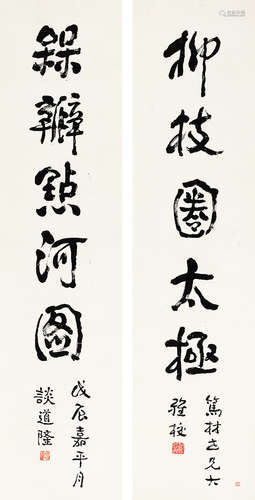 柳枝圈太極
篤材 兄大
槑瓣點河圖
戊辰嘉平月
談道隆